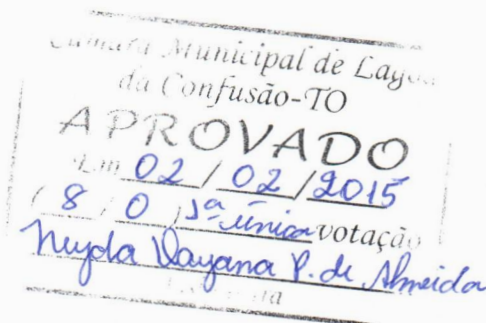 Câmara Municipal de Lagoa
da Confusão-TO
APROVADO
Em 02 / 02 / 2015
( 8 / 0 ) 1ª única votação
Dayana P. de Almeida